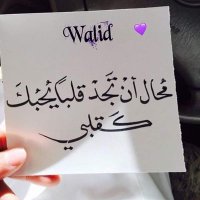 Walid 💜
مُحال أنْ تَجدَ قلباً يُحبكَ
كَـقلبي